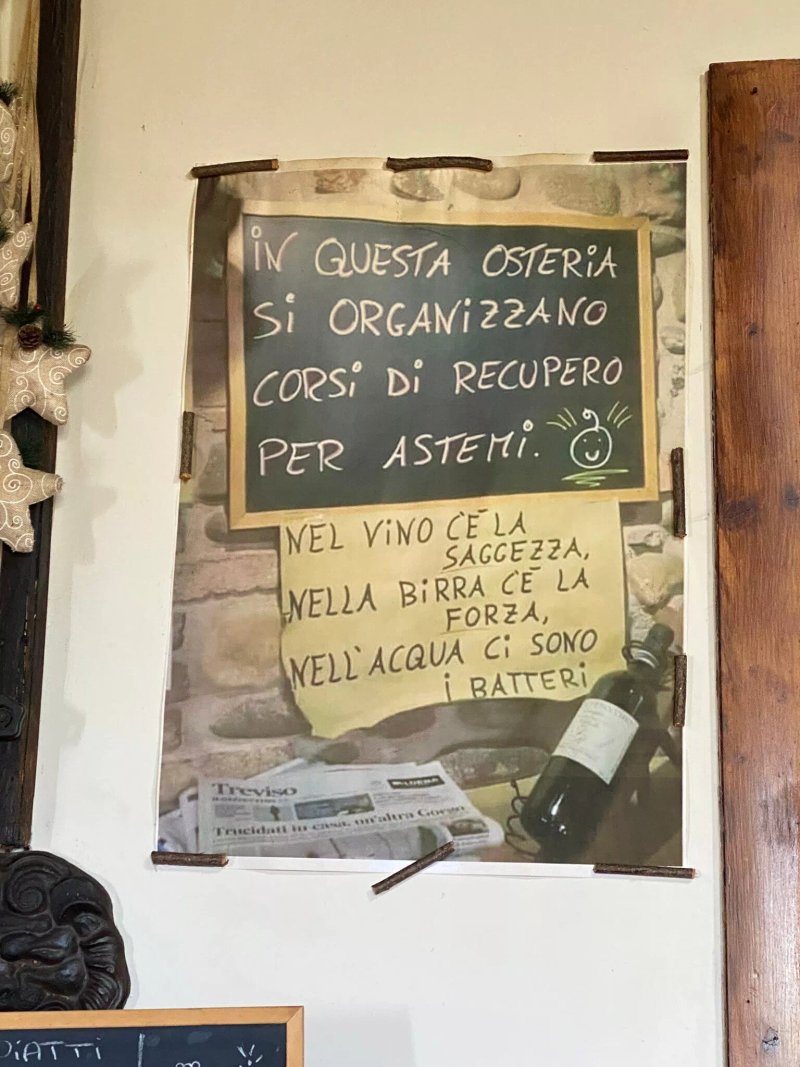 iN QUESTA OSTERiA
Si ORGANiZZANO
CORSi Di RECUPERO
PER ASTEMi.
NEL ViNO C'È LA
SAGGEZZA,
NELLA BiRRA C'È LA
FORZA,
NELL'ACQUA Ci SONO
i BATTERi
Treviso
Trucidati in casa, un'altra Gorgo
PiATTi